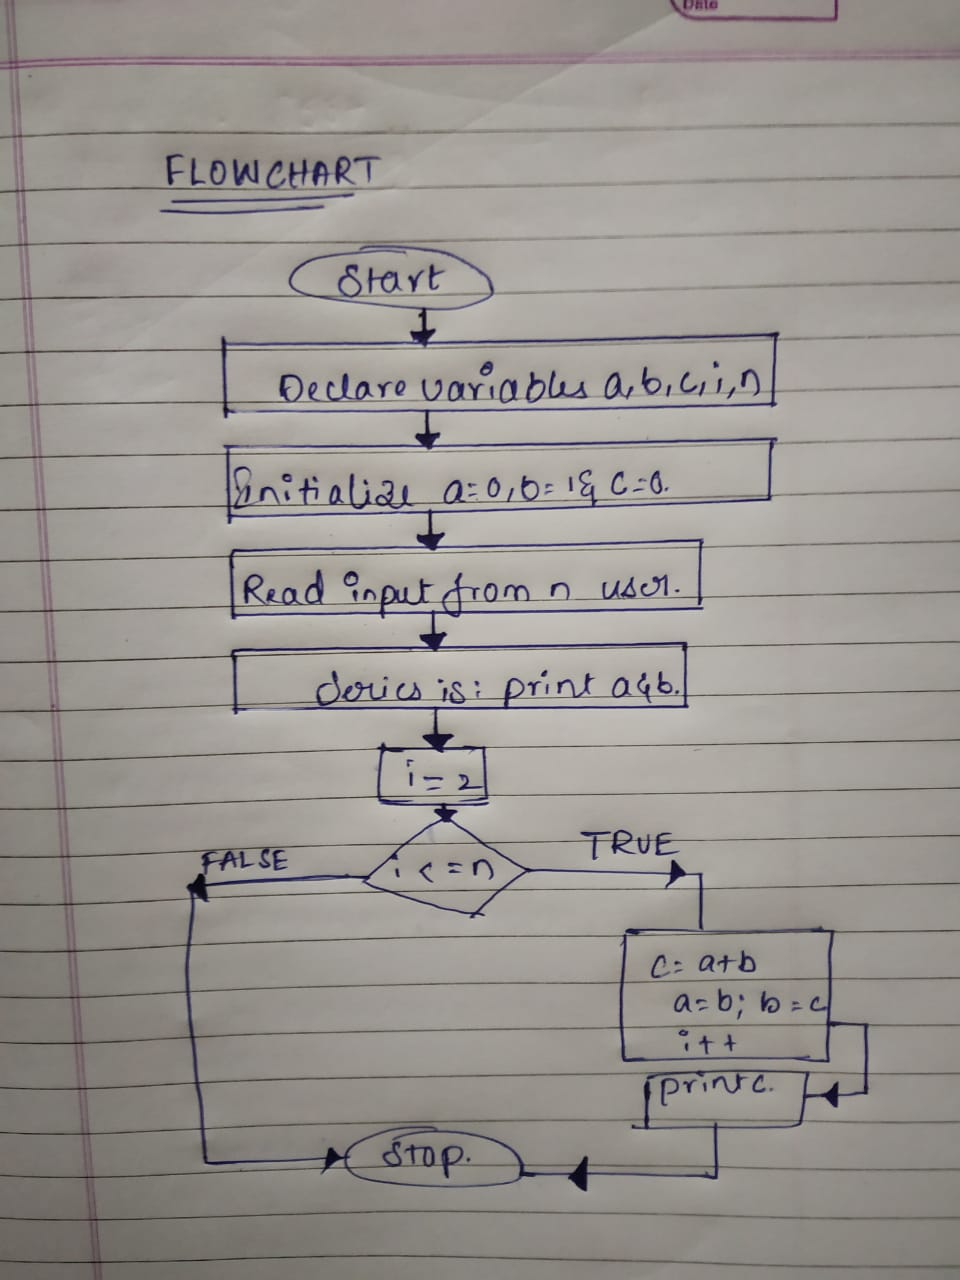 Date
FLOWCHART
Start
Declare variables a,b,c,i,n
Initialize a=0,b=1& c=0.
Read input from n user.
Series is: print a&b.
i=2
i<=n
TRUE
FALSE
c=a+b
a=b; b=c
i++
print c.
Stop.